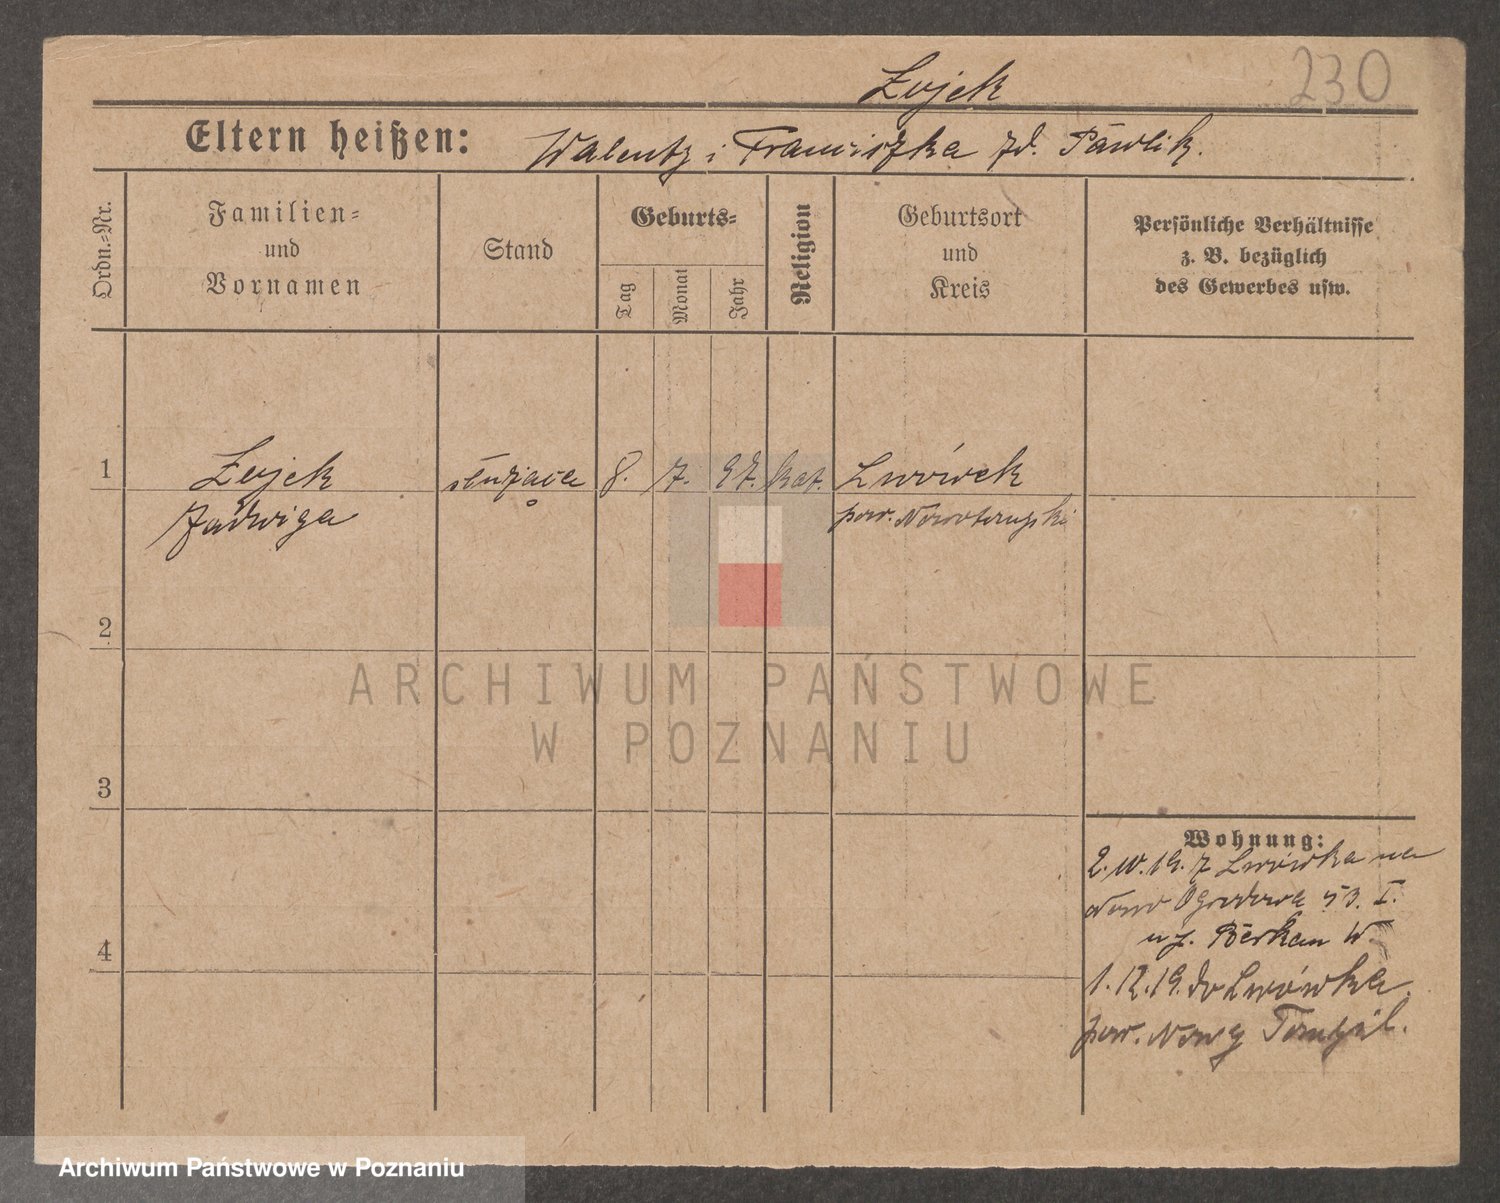 230
Zyjek
Eltern heißen: Walenty i Franciszka zd. Pawlik.
Ordn.=Nr.
Familien=
und
Vornamen
Stand
Geburts=
Tag
Monat
Jahr
Religion
Geburtsort
und
Kreis
Persönliche Verhältnisse
z. B. bezüglich
des Gewerbes usw.
1
Zyjek
Jadwiga
służąca
8. 7. 97. kat.
Lwówek
pow. Nowotomyski
2
3
4
Wohnung:
2. 10. 19. z Lwówka na
Nowo Ogrodowa 53. I.
u
1. 12. 19. do Lwówka
pow. Nowy Tomyśl.
ARCHIWUM PAŃSTWOWE
W POZNANIU
Archiwum Państwowe w Poznaniu